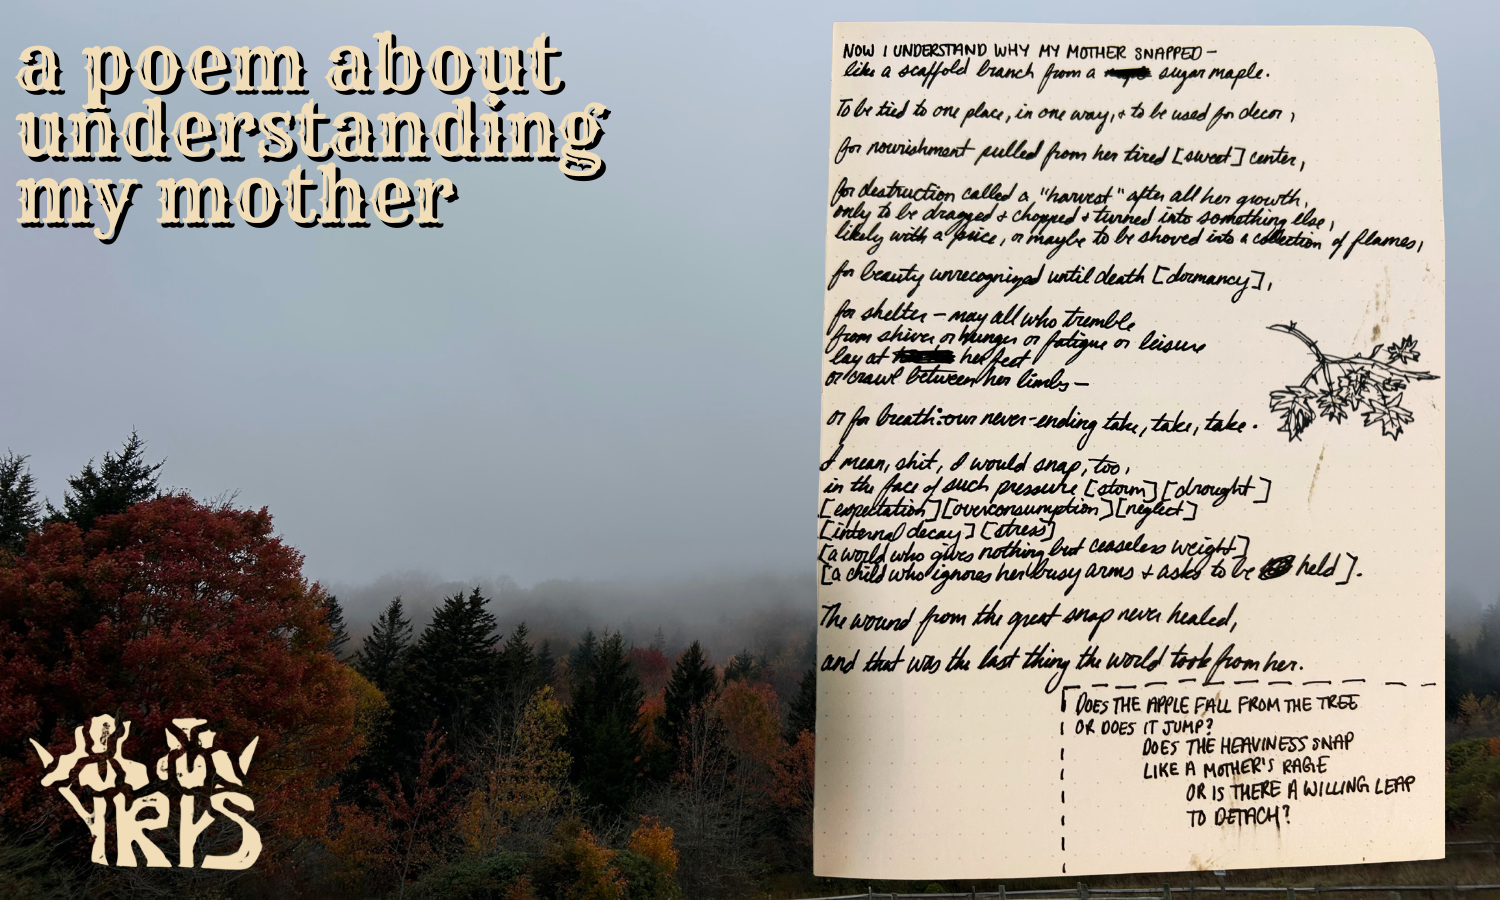 a poem about
understanding
my mother
NOW I UNDERSTAND WHY MY MOTHER SNAPPED –
like a scaffold branch from a sugar maple.
To be tied to one place, in one way, + to be used for decor,
for nourishment pulled from her tired [sweet] center,
for destruction called a "harvest" after all her growth,
only to be dragged + chopped + turned into something else,
likely with a price, or maybe to be shoved into a collection of flames,
for beauty unrecognized until death [dormancy],
for shelter – may all who tremble
from shiver or hunger or fatigue or leisure
lay at her feet
or crawl between her limbs –
or for breath: our never-ending take, take, take.
I mean, shit, I would snap, too,
in the face of such pressure [storm] [drought]
[expectation] [overconsumption] [neglect]
[internal decay] [stress]
[a world who gives nothing but ceaseless weight]
[a child who ignores her busy arms + asks to be held].
The wound from the great snap never healed,
and that was the last thing the world took from her.
DOES THE APPLE FALL FROM THE TREE
OR DOES IT JUMP?
DOES THE HEAVINESS SNAP
LIKE A MOTHER'S RAGE
OR IS THERE A WILLING LEAP
TO DETACH?
IRIS